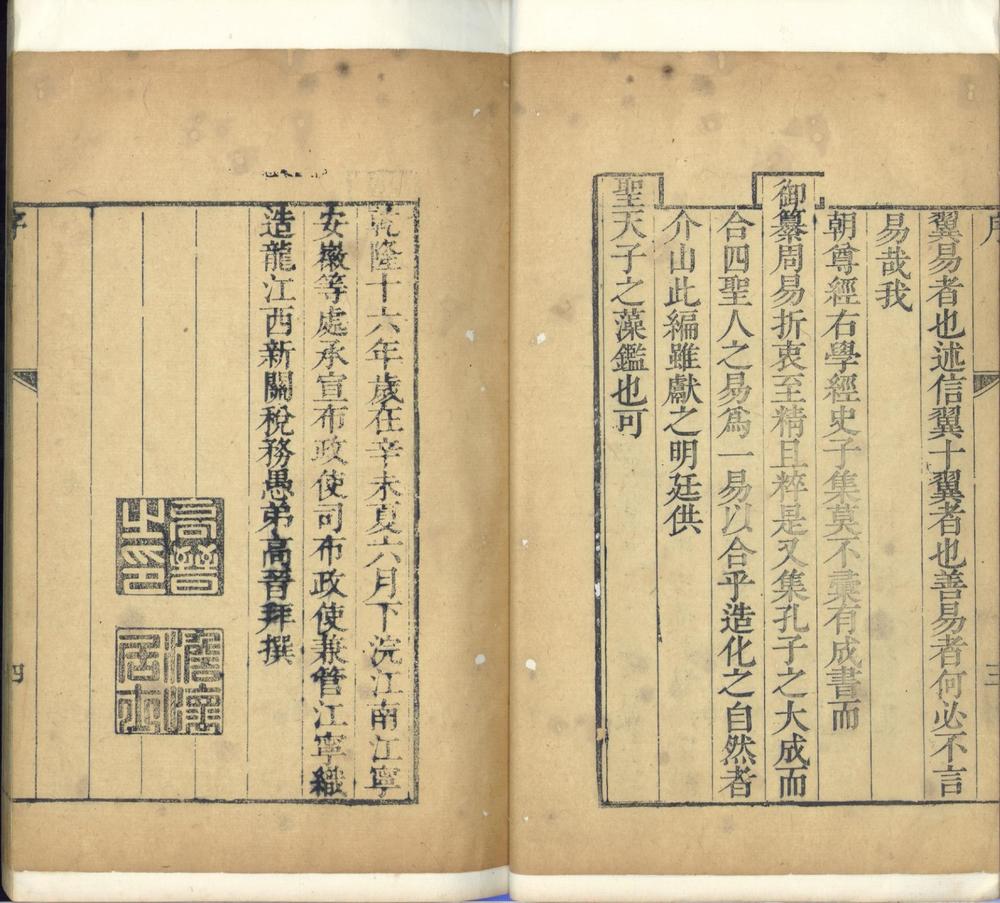 序
三
翼易者也述信翼十翼者也善易者何必不言
易哉我
朝尊經右學經史子集莫不彙有成書而
御纂周易折衷至精且粹是又集孔子之大成而
合四聖人之易爲一易以合乎造化之自然者
介山此編雖獻之明廷供
聖天子之藻鑑也可
乾隆十六年歲在辛未夏六月下浣江南江寧
安徽等處承宣布政使司布政使兼管江寧織
造龍江西新關稅務愚弟高晉拜撰
高晉之印
序
四